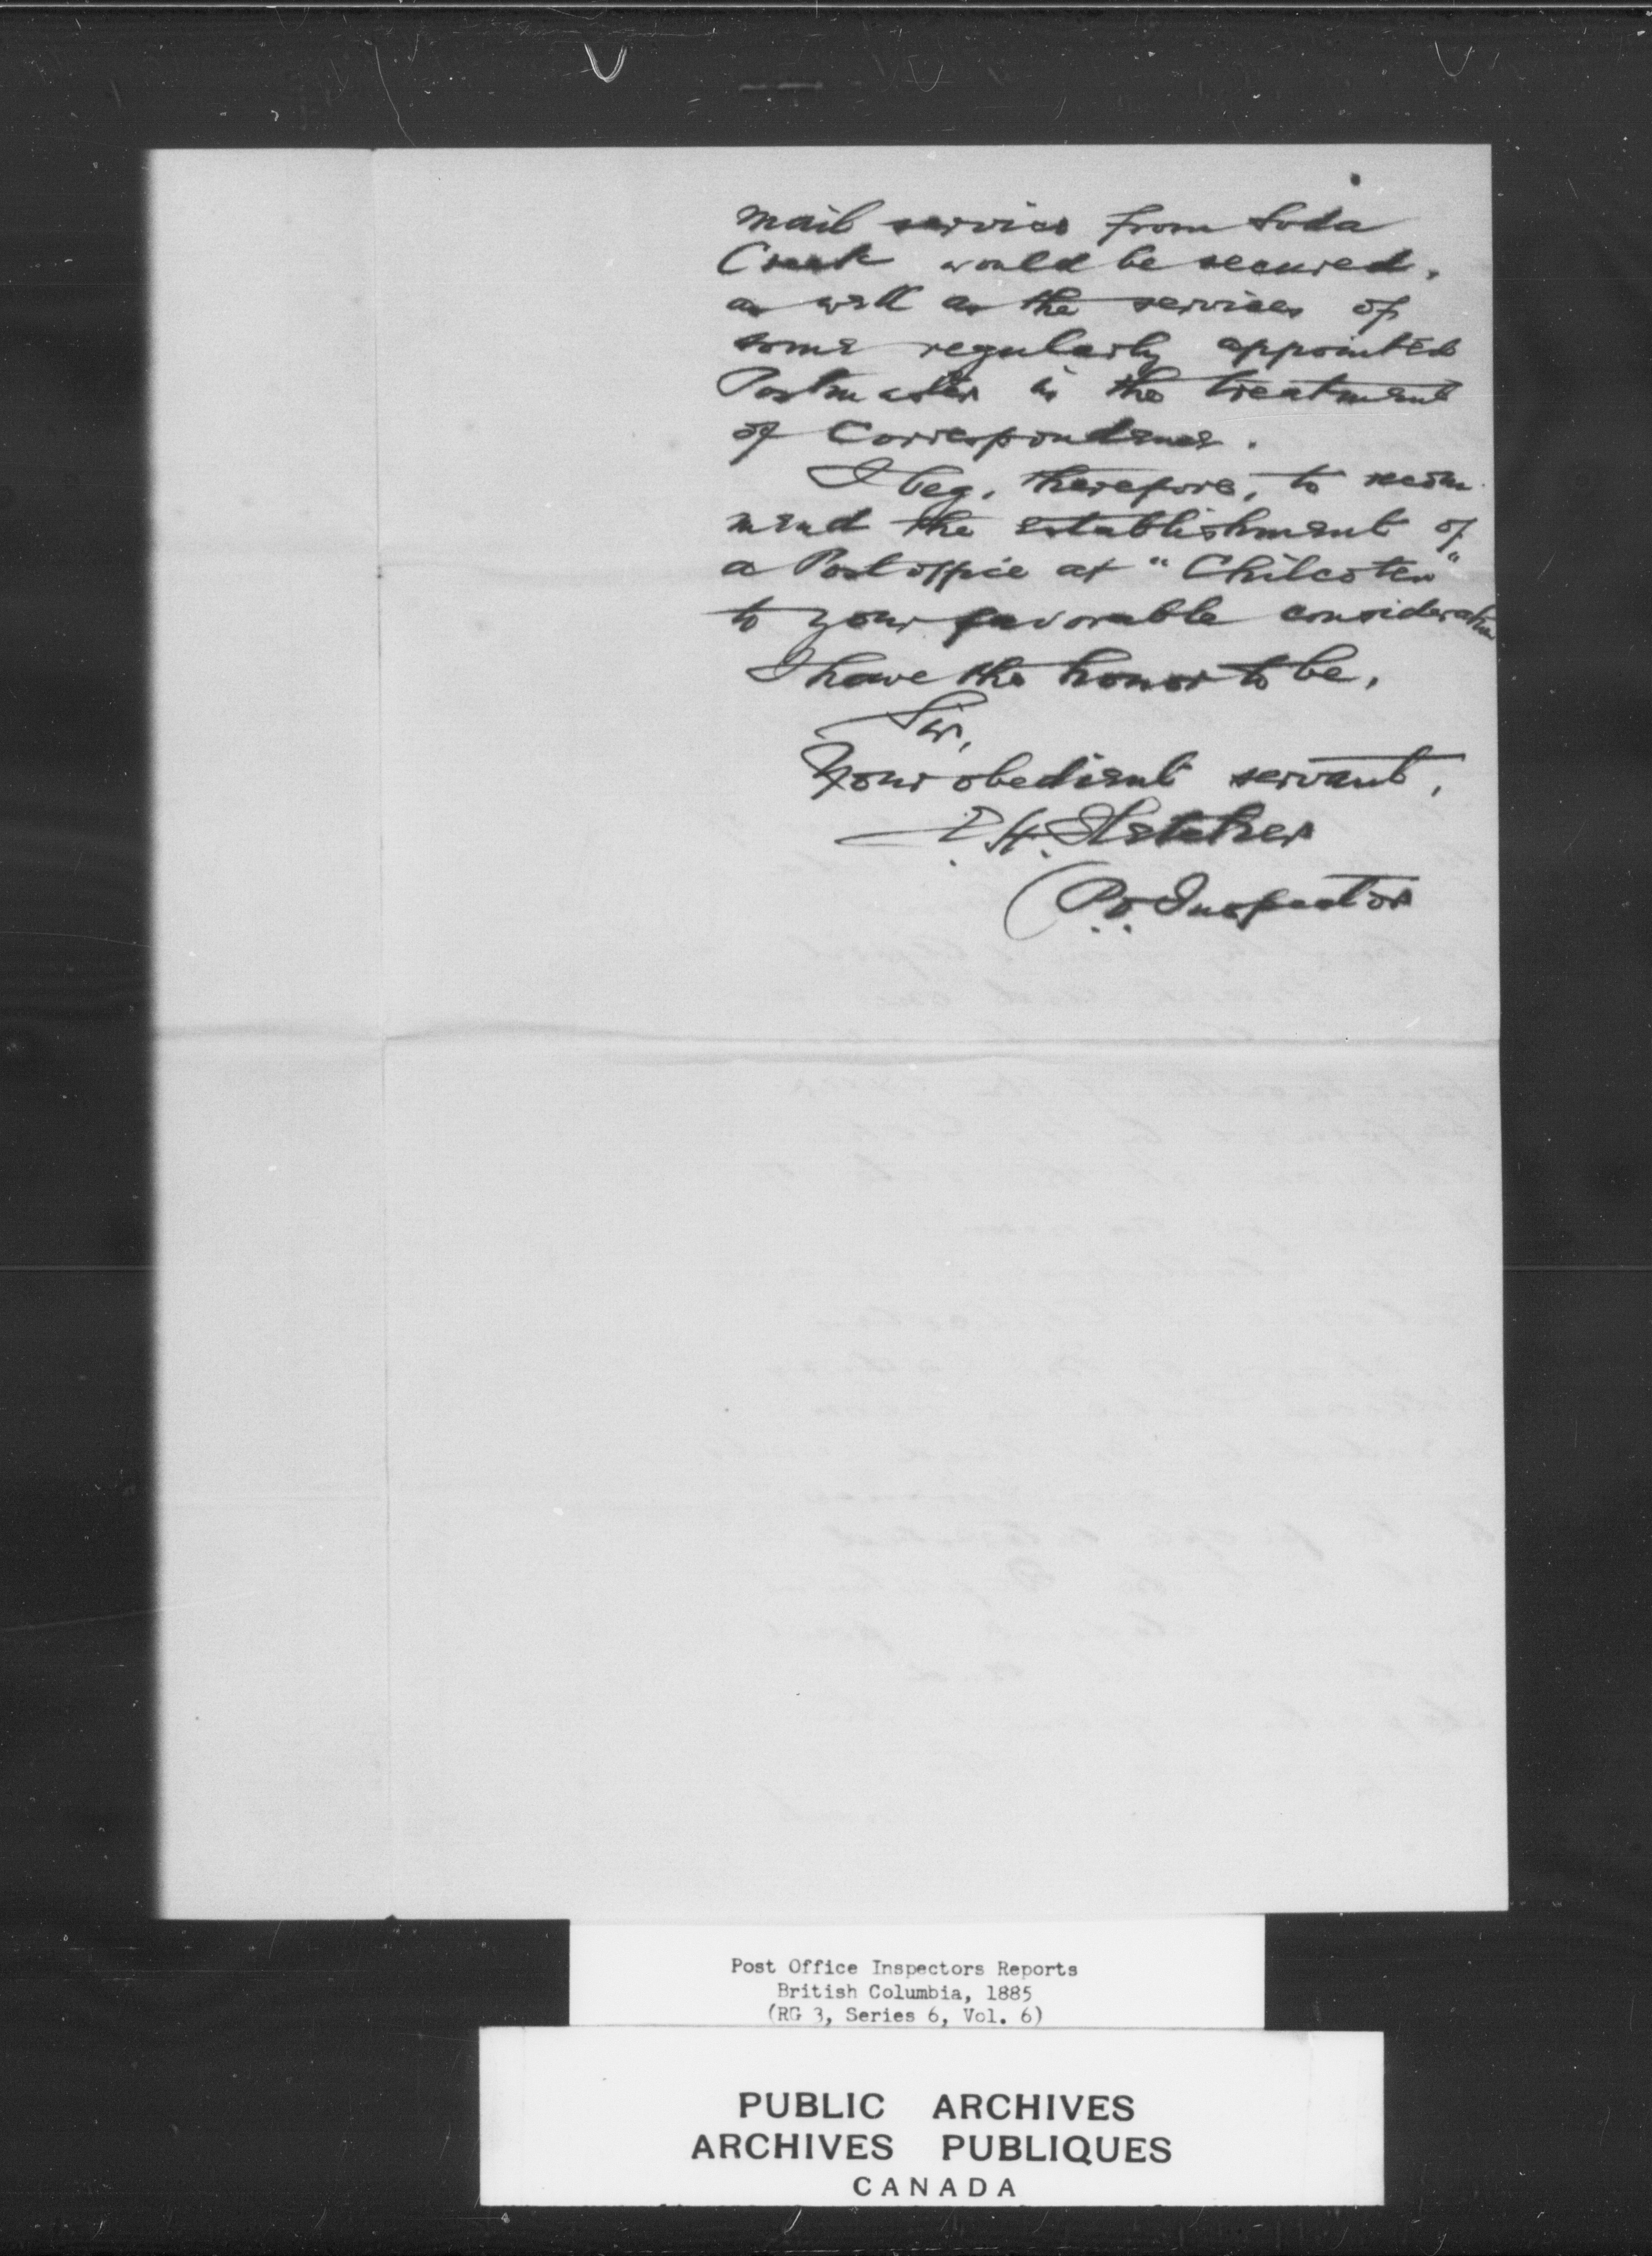 mail service from Soda
Creek would be secured,
as well as the services of
some regularly appointed
Postmaster in the treatment
of Correspondence.
I beg, therefore, to recom
mend the establishment of
a Post office at "Chilcoten"
to your favorable consideration
I have the honor to be,
Sir,
Your obedient servant,
E.H. Fletcher
P.O. Inspector
Post Office Inspectors Reports
British Columbia, 1885
(RG 3, Series 6, Vol. 6)
PUBLIC ARCHIVES
ARCHIVES PUBLIQUES
CANADA